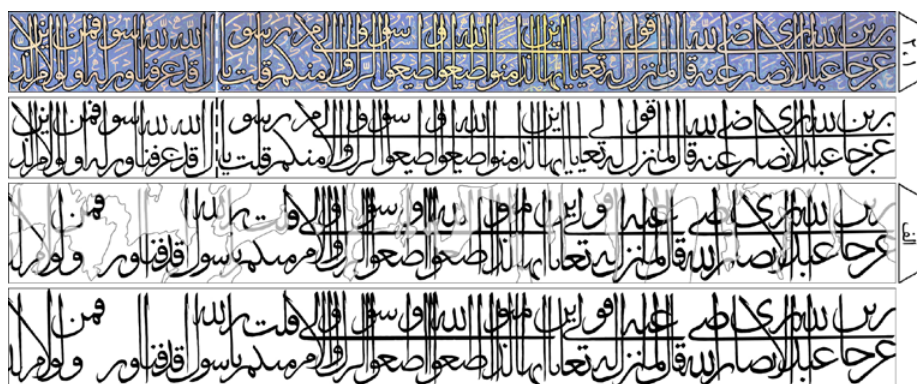 عن جابر بن عبدالله الانصاري رضي الله عنه قال لما نزل قوله تعالى يا ايها الذين امنوا اطيعوا الله و اطيعوا الرسول و اولي الامر منكم قلت يا رسول الله قد عرفنا الله و رسوله فمن اولو الامر الذين
عن جابر بن عبدالله الانصاري رضي الله عنه قال لما نزل قوله تعالى يا ايها الذين امنوا اطيعوا الله و اطيعوا الرسول و اولي الامر منكم قلت يا رسول الله قد عرفنا الله و رسوله فمن اولو الامر الذين
عن جابر بن عبدالله الانصاري رضي الله عنه قال لما نزل قوله تعالى يا ايها الذين امنوا اطيعوا الله و اطيعوا الرسول و اولي الامر منكم قلت يا رسول الله قد عرفنا فمن اولو الامر
عن جابر بن عبدالله الانصاري رضي الله عنه قال لما نزل قوله تعالى يا ايها الذين امنوا اطيعوا الله و اطيعوا الرسول و اولي الامر منكم قلت يا رسول الله قد عرفنا فمن اولو الامر
الف